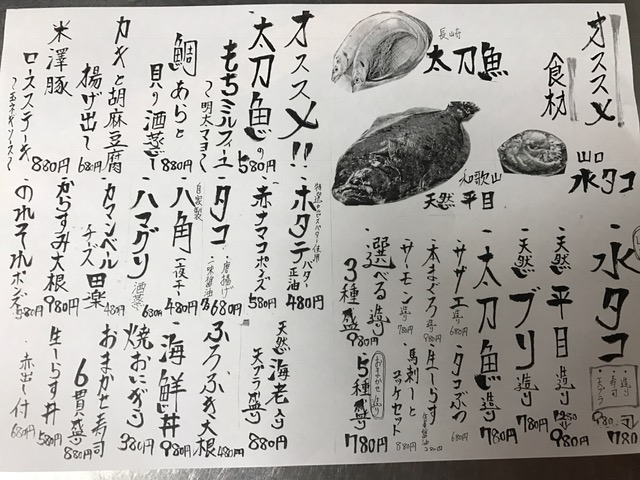 オススメ
食材
長崎
太刀魚
山口
水タコ
和歌山
天然 平目
水タコ
造り
寿司
天プラ
980円
780円
天然 平目 造り
980円
天然 ブリ 造り 780円
太刀魚 造り 780円
サザエ 造り 680円
タコぶつ 780円
本まぐろ 造り 980円
生しらす
サーモン 造り 780円
馬刺しと
ユッケセット
880円
選べる 造り
3種盛 980円
おまかせ造り
5種盛 780円
オススメ!!
太刀魚の
もちミルフィーユ
〜明太マヨ〜
580円
鯛あらと
貝の酒蒸し
880円
カキと胡麻豆腐
揚げ出し
680円
米澤豚
ロースステーキ
〜玉ネギソース〜
880円
ホタテ バター正油 480円
赤ナマコポンズ 580円
タコ
唐揚げ
一味醤油
680円
自家製
八角 一夜干 480円
ハマグリ 酒蒸 680円
カマンベール
チーズ 田楽
480円
からすみ大根 980円
のれそれポンズ 580円
天然 海老入り
天プラ盛り
880円
ふろふき大根 480円
海鮮丼 980円
焼おにぎり 380円
おまかせ寿司
6貫盛り
880円
生しらす丼 580円
赤出し付 680円